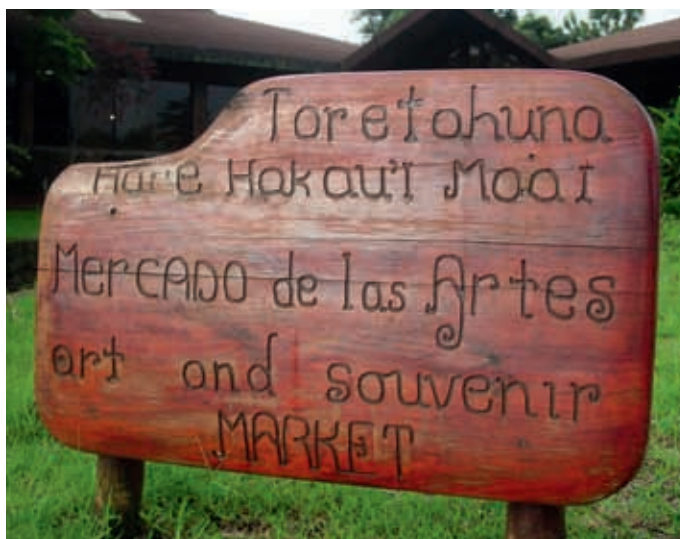 Toretahuna
Hare Hakau'i Moai
MerCADO de las Artes
art and souvenir
MARKET